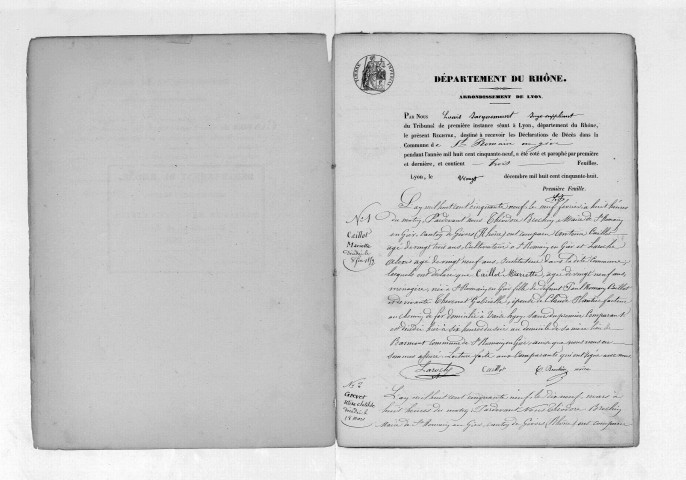 DÉPARTEMENT DU RHÔNE.
ARRONDISSEMENT DE LYON.
PAR NOUS Louis Juge suppléant
du Tribunal de première instance séant à Lyon, département du Rhône,
le présent REGISTRE, destiné à recevoir les Déclarations de Décès dans la
Commune de St Romain en gier
pendant l'année mil huit cent cinquante-neuf, a été coté et paraphé par première
et dernière, et contient trois Feuilles.
Lyon, le vingt décembre mil huit cent cinquante-huit.
Première Feuille.
No 1
Caillot
Mariette
décédée le
8 février
L'an mil huit cent cinquante neuf le neuf février à huit heures
du matin, Pardevant nous Théodore Maire de St Romain
en Gier, canton de Givors (Rhône) ont comparu Caillot
agé de vingt trois ans, Cultivateur à St Romain en Gier et Laroche
agé de vingt neuf ans, Instituteur dans la dite Commune
lesquels ont déclaré que Caillot Mariette, agée de vingt neuf ans,
ménagère, née à St Romain en Gier fille de défunt Caillot
et de vivante Gabrielle, épouse de Claude
au chemin de fer domicilié à
est décédée hier à six heures du soir au domicile de sa
commune de St Romain en Gier, ainsi que nous nous en
sommes assuré. Lecture faite aux Comparants qui ont signé avec nous
Laroche Caillot maire
No 2
décédé le
18 mars
L'an mil huit cent cinquante neuf le dix neuf mars à
huit heures du matin Pardevant Nous Théodore
Maire de St Romain en Gier, canton de Givors (Rhône) ont comparu